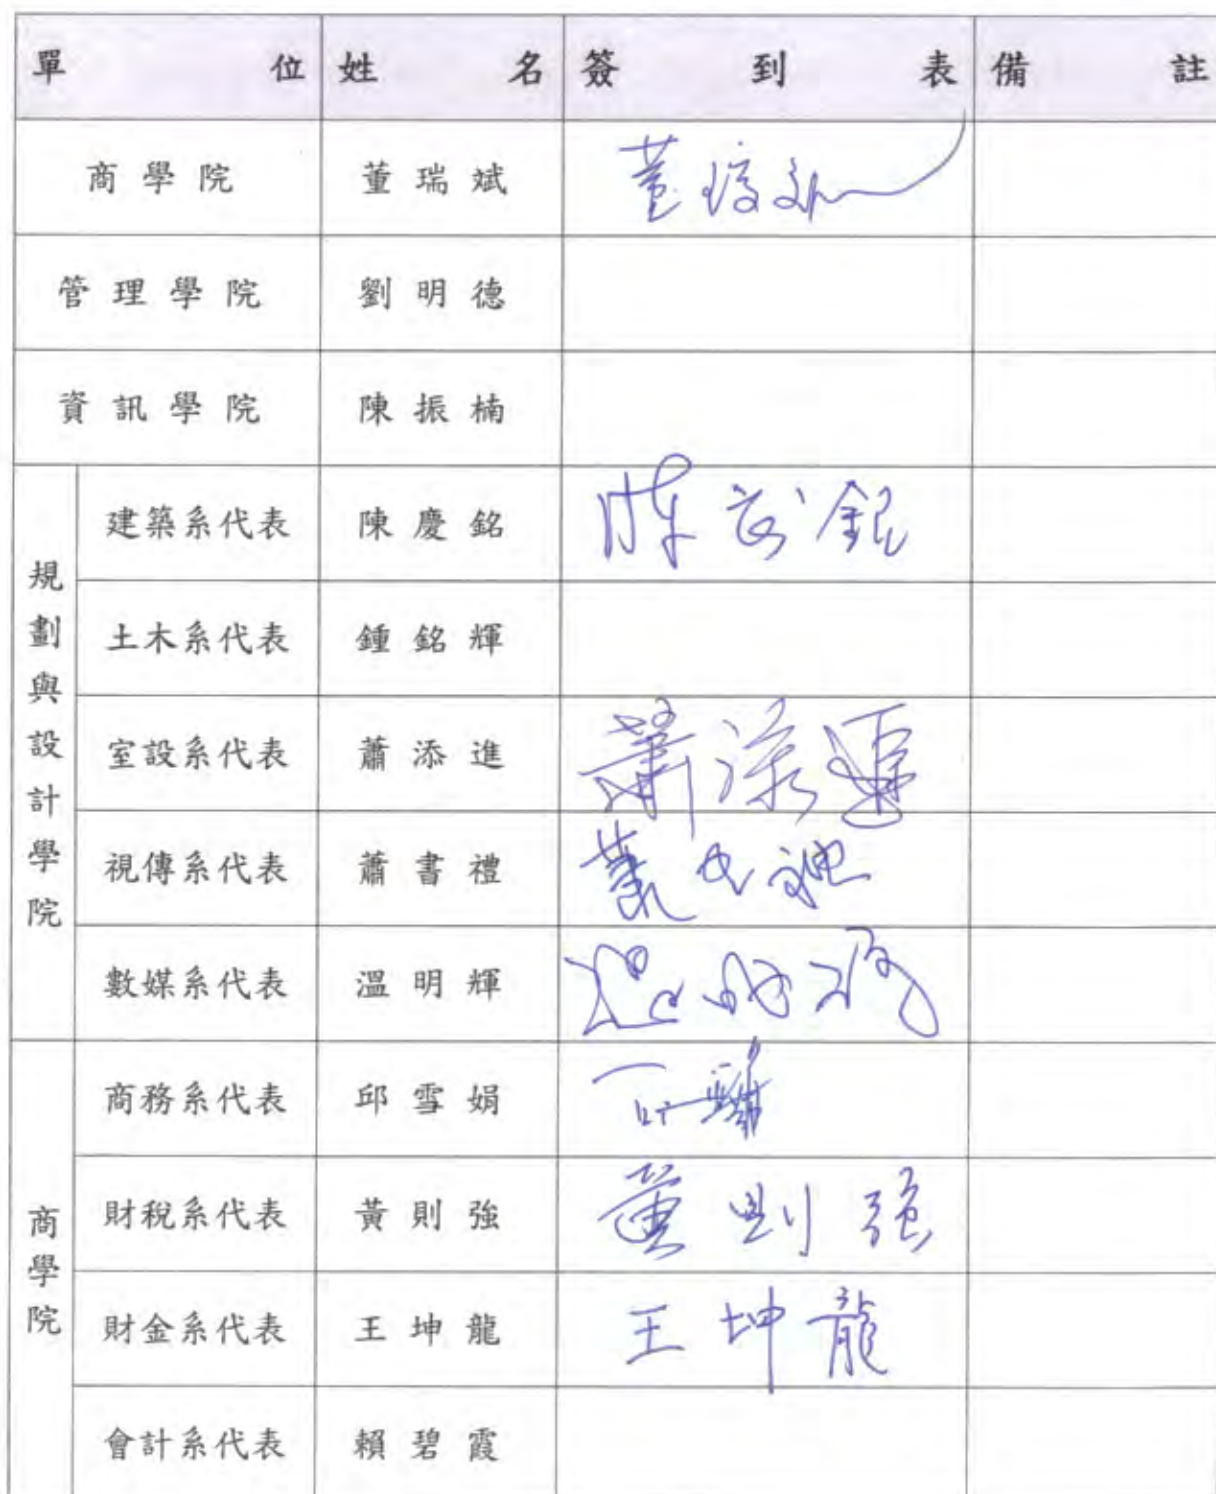 單位 姓名 簽到表 備註
商學院 董瑞斌
管理學院 劉明德
資訊學院 陳振楠
規劃與設計學院
建築系代表 陳慶銘
土木系代表 鍾銘輝
室設系代表 蕭添進 蕭添進
視傳系代表 蕭書禮
數媒系代表 溫明輝
商學院
商務系代表 邱雪娟
財稅系代表 黃則強 黃則強
財金系代表 王坤龍 王坤龍
會計系代表 賴碧霞